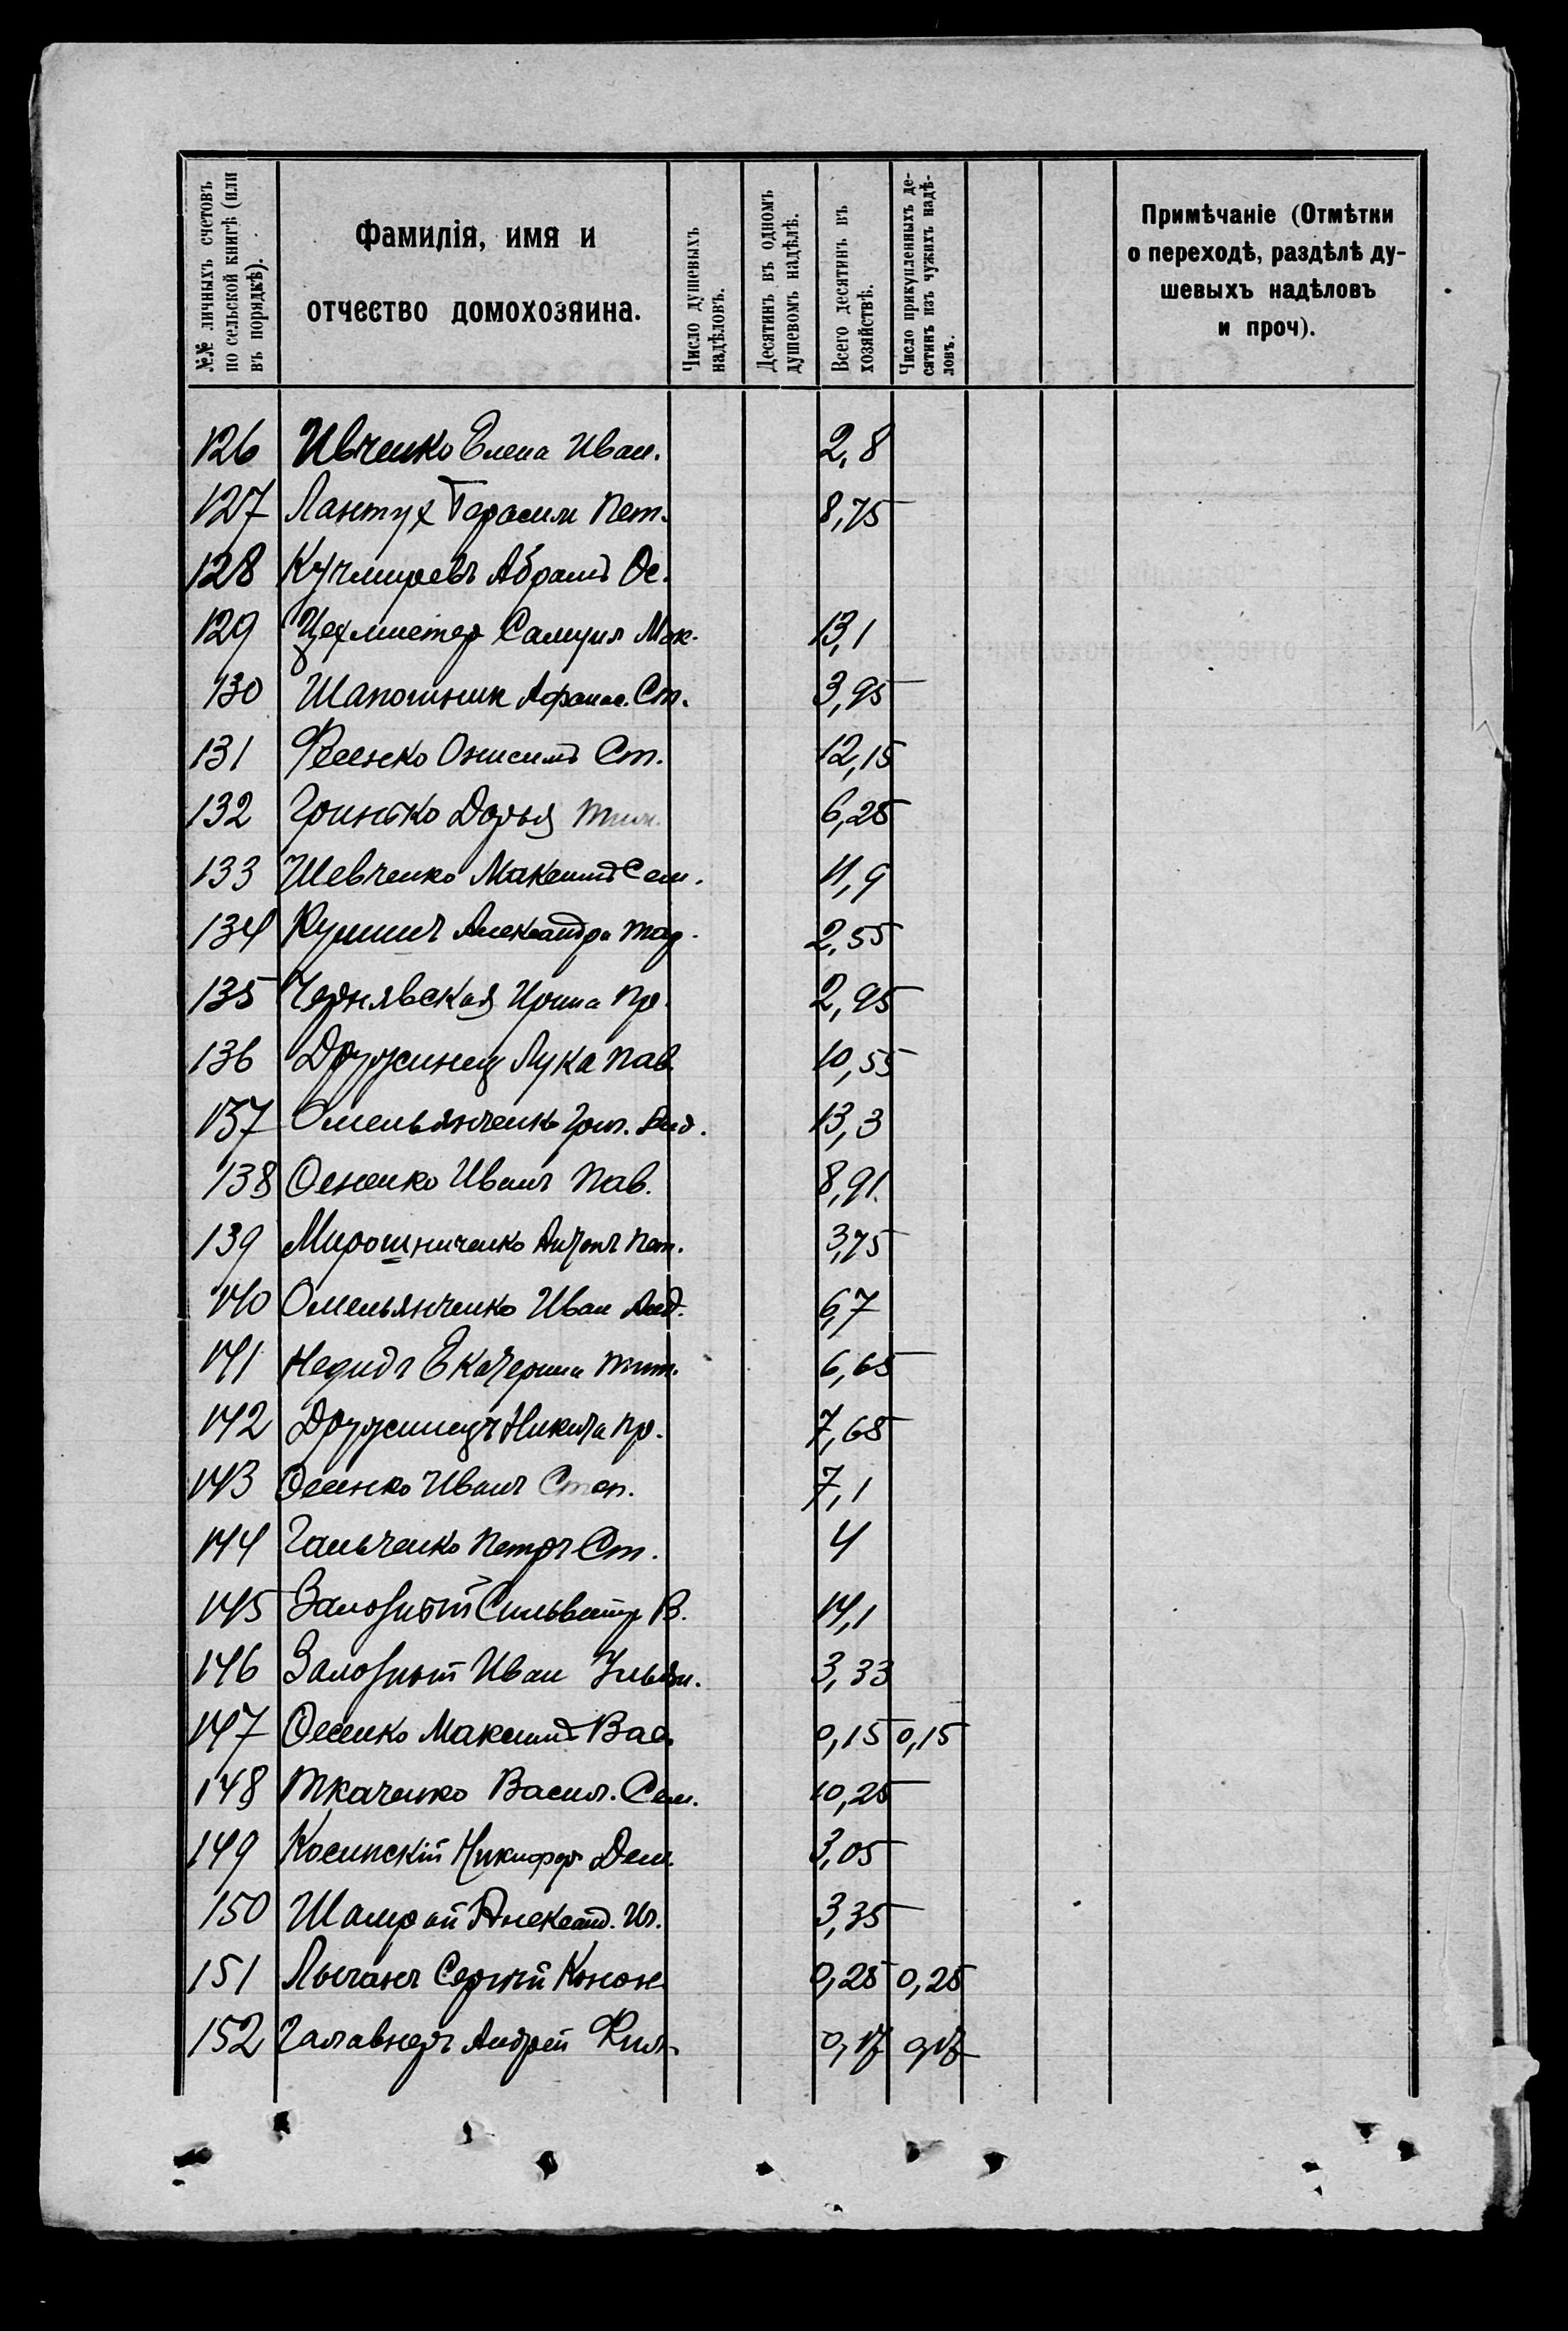 №№ личныхъ счетовъ
по сельской книгѣ (или
въ порядкѣ).
Фамилія, имя и
отчество домохозяина.
Число душевыхъ
надѣловъ.
Десятинъ въ одномъ
душевомъ надѣлѣ.
Всего десятинъ въ
хозяйствѣ.
Число прикупленныхъ де-
сятинъ изъ чужихъ надѣ-
ловъ.
Примѣчаніе (Отмѣтки
о переходѣ, раздѣлѣ ду-
шевыхъ надѣловъ
и проч).
126 Ивченко Елена Иван. 2,8
127 Лантух Герасим Пет. 8,75
128 Абрамъ Ос.
129 Цехмистер Самуил Мак. 13,1
130 Шапошник Афанас. Ст. 3,95
131 Фесенко Онисимъ Ст. 12,15
132 Гринько Дарья Тим. 6,25
133 Шевченко Максимъ Сем. 11,9
134 Александра 2,55
135 Чернявская Ирина Пр. 2,95
136 Дружинец Лука Пав. 10,55
137 Омельянченко Григ. Анд. 13,3
138 Осненко Иванъ Пав. 8,91
139 Мирошниченко Антонъ Пет. 3,75
140 Омельянченко Иван Анд. 6,7
141 Екатерина Тит. 6,65
142 Дружинецъ Никита Пр. 7,65
143 Осенко Иванъ Степ. 7,1
144 Гальченко Петръ Ст. 4
145 Залозный Сильвестр В. 14,1
146 Залозный Иван Ульян. 3,33
147 Осенко Максимъ Вас. 0,15 0,15
148 Ткаченко Васил. Сем. 10,25
149 Косинскій Никифор Дем. 3,05
150 Шамрай Александ. Ил. 3,35
151 Лычакъ Сергѣй Конон. 0,25 0,25
152 Андрей Фил. 0,17 0,17